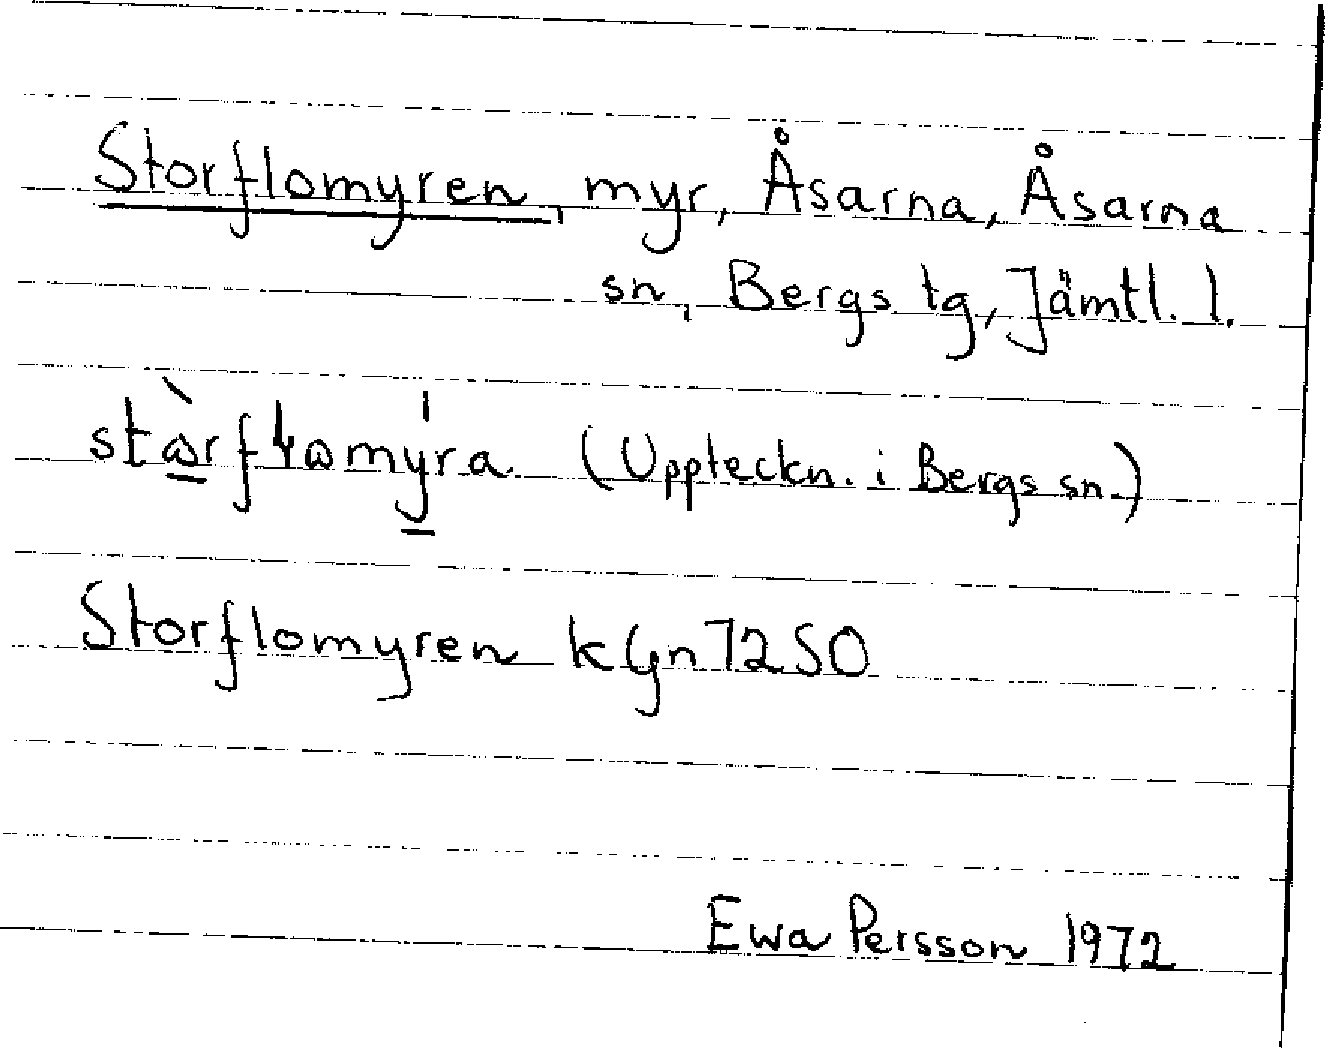 Storflomyren, myr, Åsarna, Åsarna
sn, Bergs tg, Jämtl. l.
(Uppteckn. i Bergs sn.)
Storflomyren kGn7250
Ewa Persson 1972